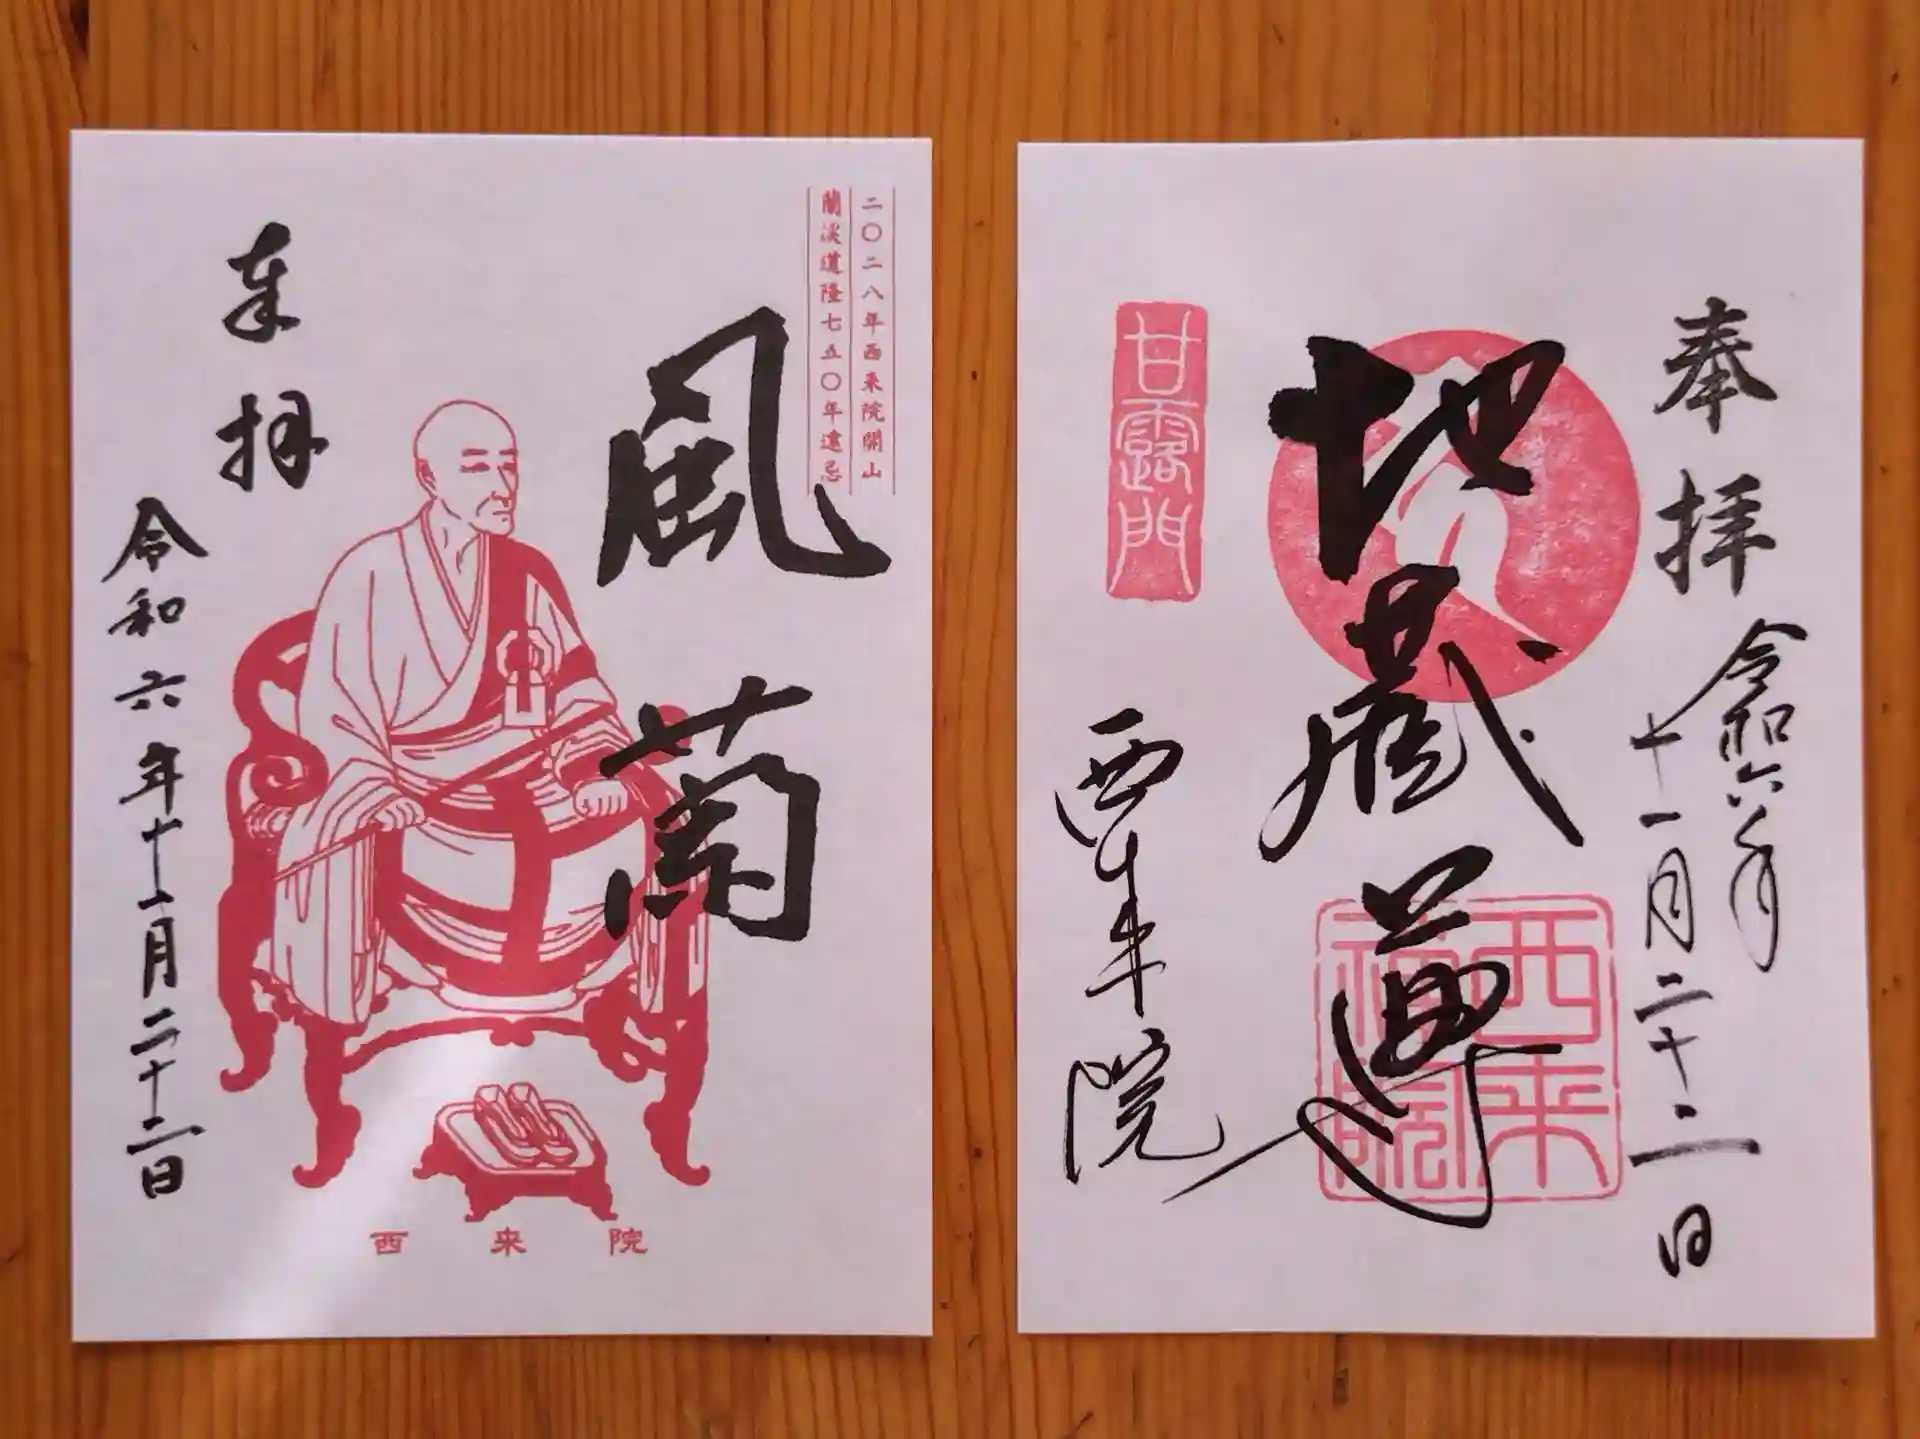 二〇二八年西来院開山
蘭渓道隆七五〇年遠忌
風蘭
奉拝
令和六年十一月二十二日
西来院
奉拝
令和六年
十一月二十二日
地蔵尊
西来禅院
甘露門
西来院